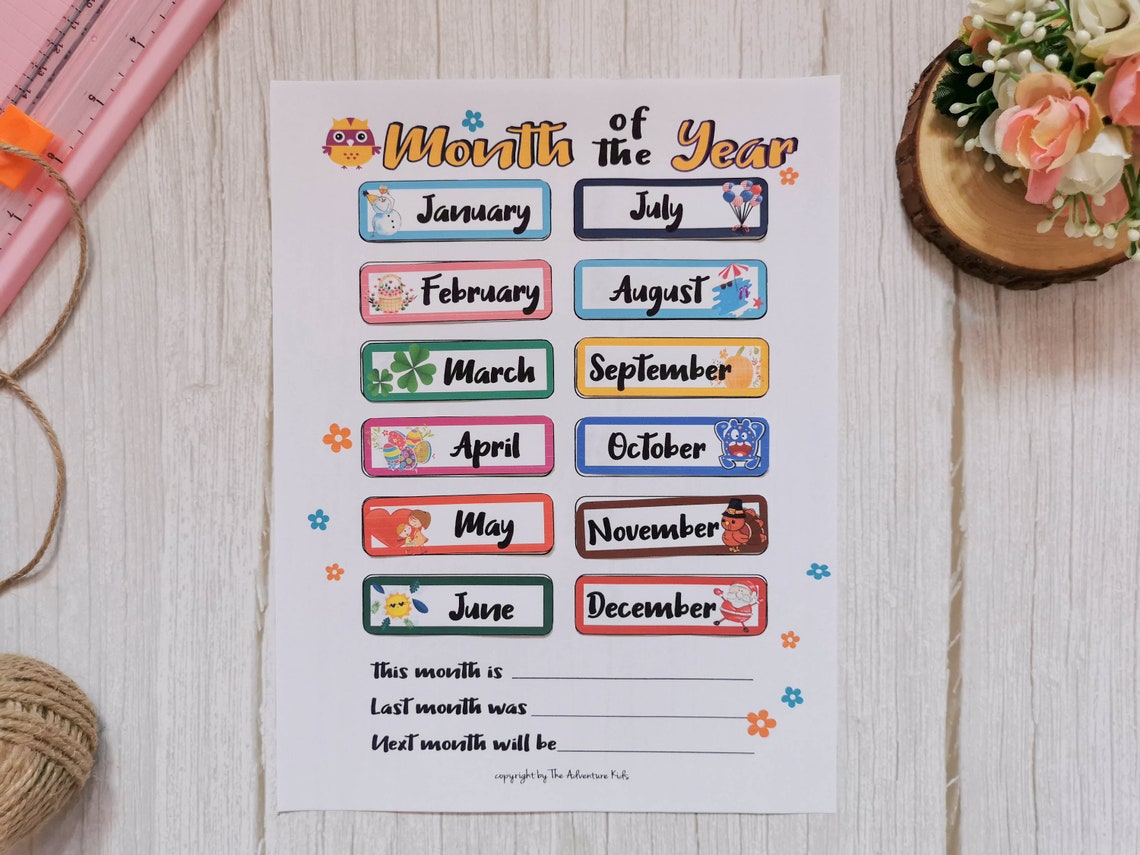 Month of the Year
January
February
March
April
May
June
July
August
September
October
November
December
This month is
Last month was
Next month will be
copyright by The Adventure Kids